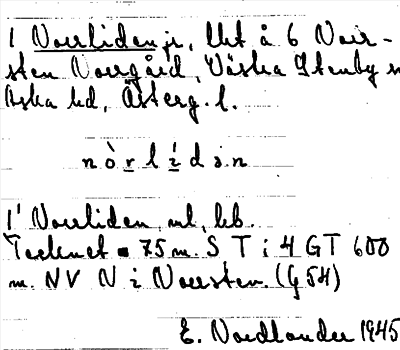 1 Norrliden je, lht å 6 Norr-
sten Norrgård, Västra Stenby sn
Aska hd, Österg. l.
n ò r l í d ə n
1' Norrliden, ml, bb.
Torpnet 75 m. S T i 4 GT 600
m. NV N i Norrsten. (G 54)
E. Nordlander 1945